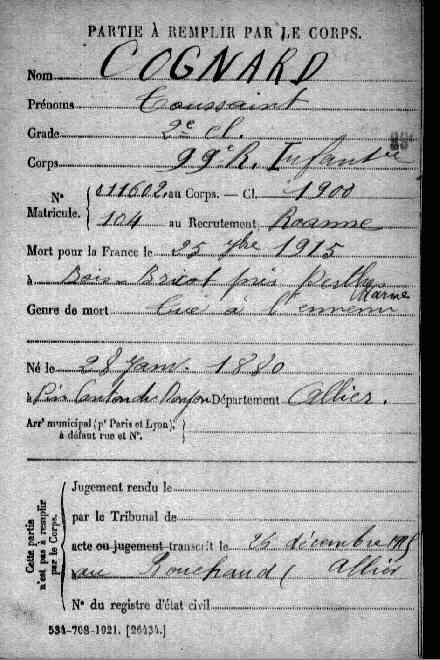 PARTIE À REMPLIR PAR LE CORPS.
Nom COGNARD
Prénoms Toussaint
Grade 2e cl.
Corps 99e R. Infantie
N° Matricule. 011602 au Corps. — Cl. 1900
104 au Recrutement Roanne
Mort pour la France le 25 7bre 1915
à Bois Bricot près Perthes Marne
Genre de mort Tué à l'ennemi
Né le 28 Janv. 1880
à Pin Canton du Donjon Département Allier.
Arrt municipal (pr Paris et Lyon), à défaut rue et N°.
Cette partie n'est pas à remplir par le Corps.
Jugement rendu le
par le Tribunal de
acte ou jugement transcrit le 26 décembre 1915
au Bouchaud (Allier
N° du registre d'état civil
534-708-1921. [26434.]